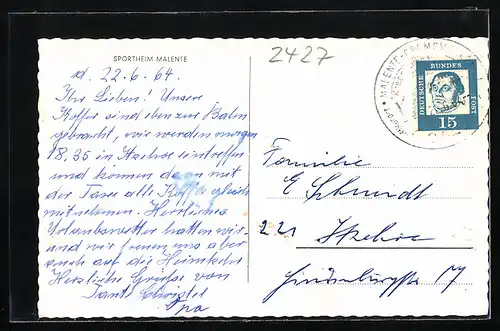 SPORTHEIM MALENTE
2427
d. 22.6.64.
Ihr Lieben! Unsere
Koffer sind eben zur Bahn
gebracht, wir werden morgen
18,35 in Itzehoe eintreffen
und können dann mit
der Taxe alle Koffer gleich
mitnehmen. Herrliches
Urlaubswetter hatten wir
und wir freuen uns aber
auch auf die Heimkehr
Herzliche Grüße von
Tante Christel
Opa
MALENTE-GREMSM
DEUTSCHE BUNDESPOST
15
Familie
E Schmidt
221 Itzehoe
Hindenburgstr